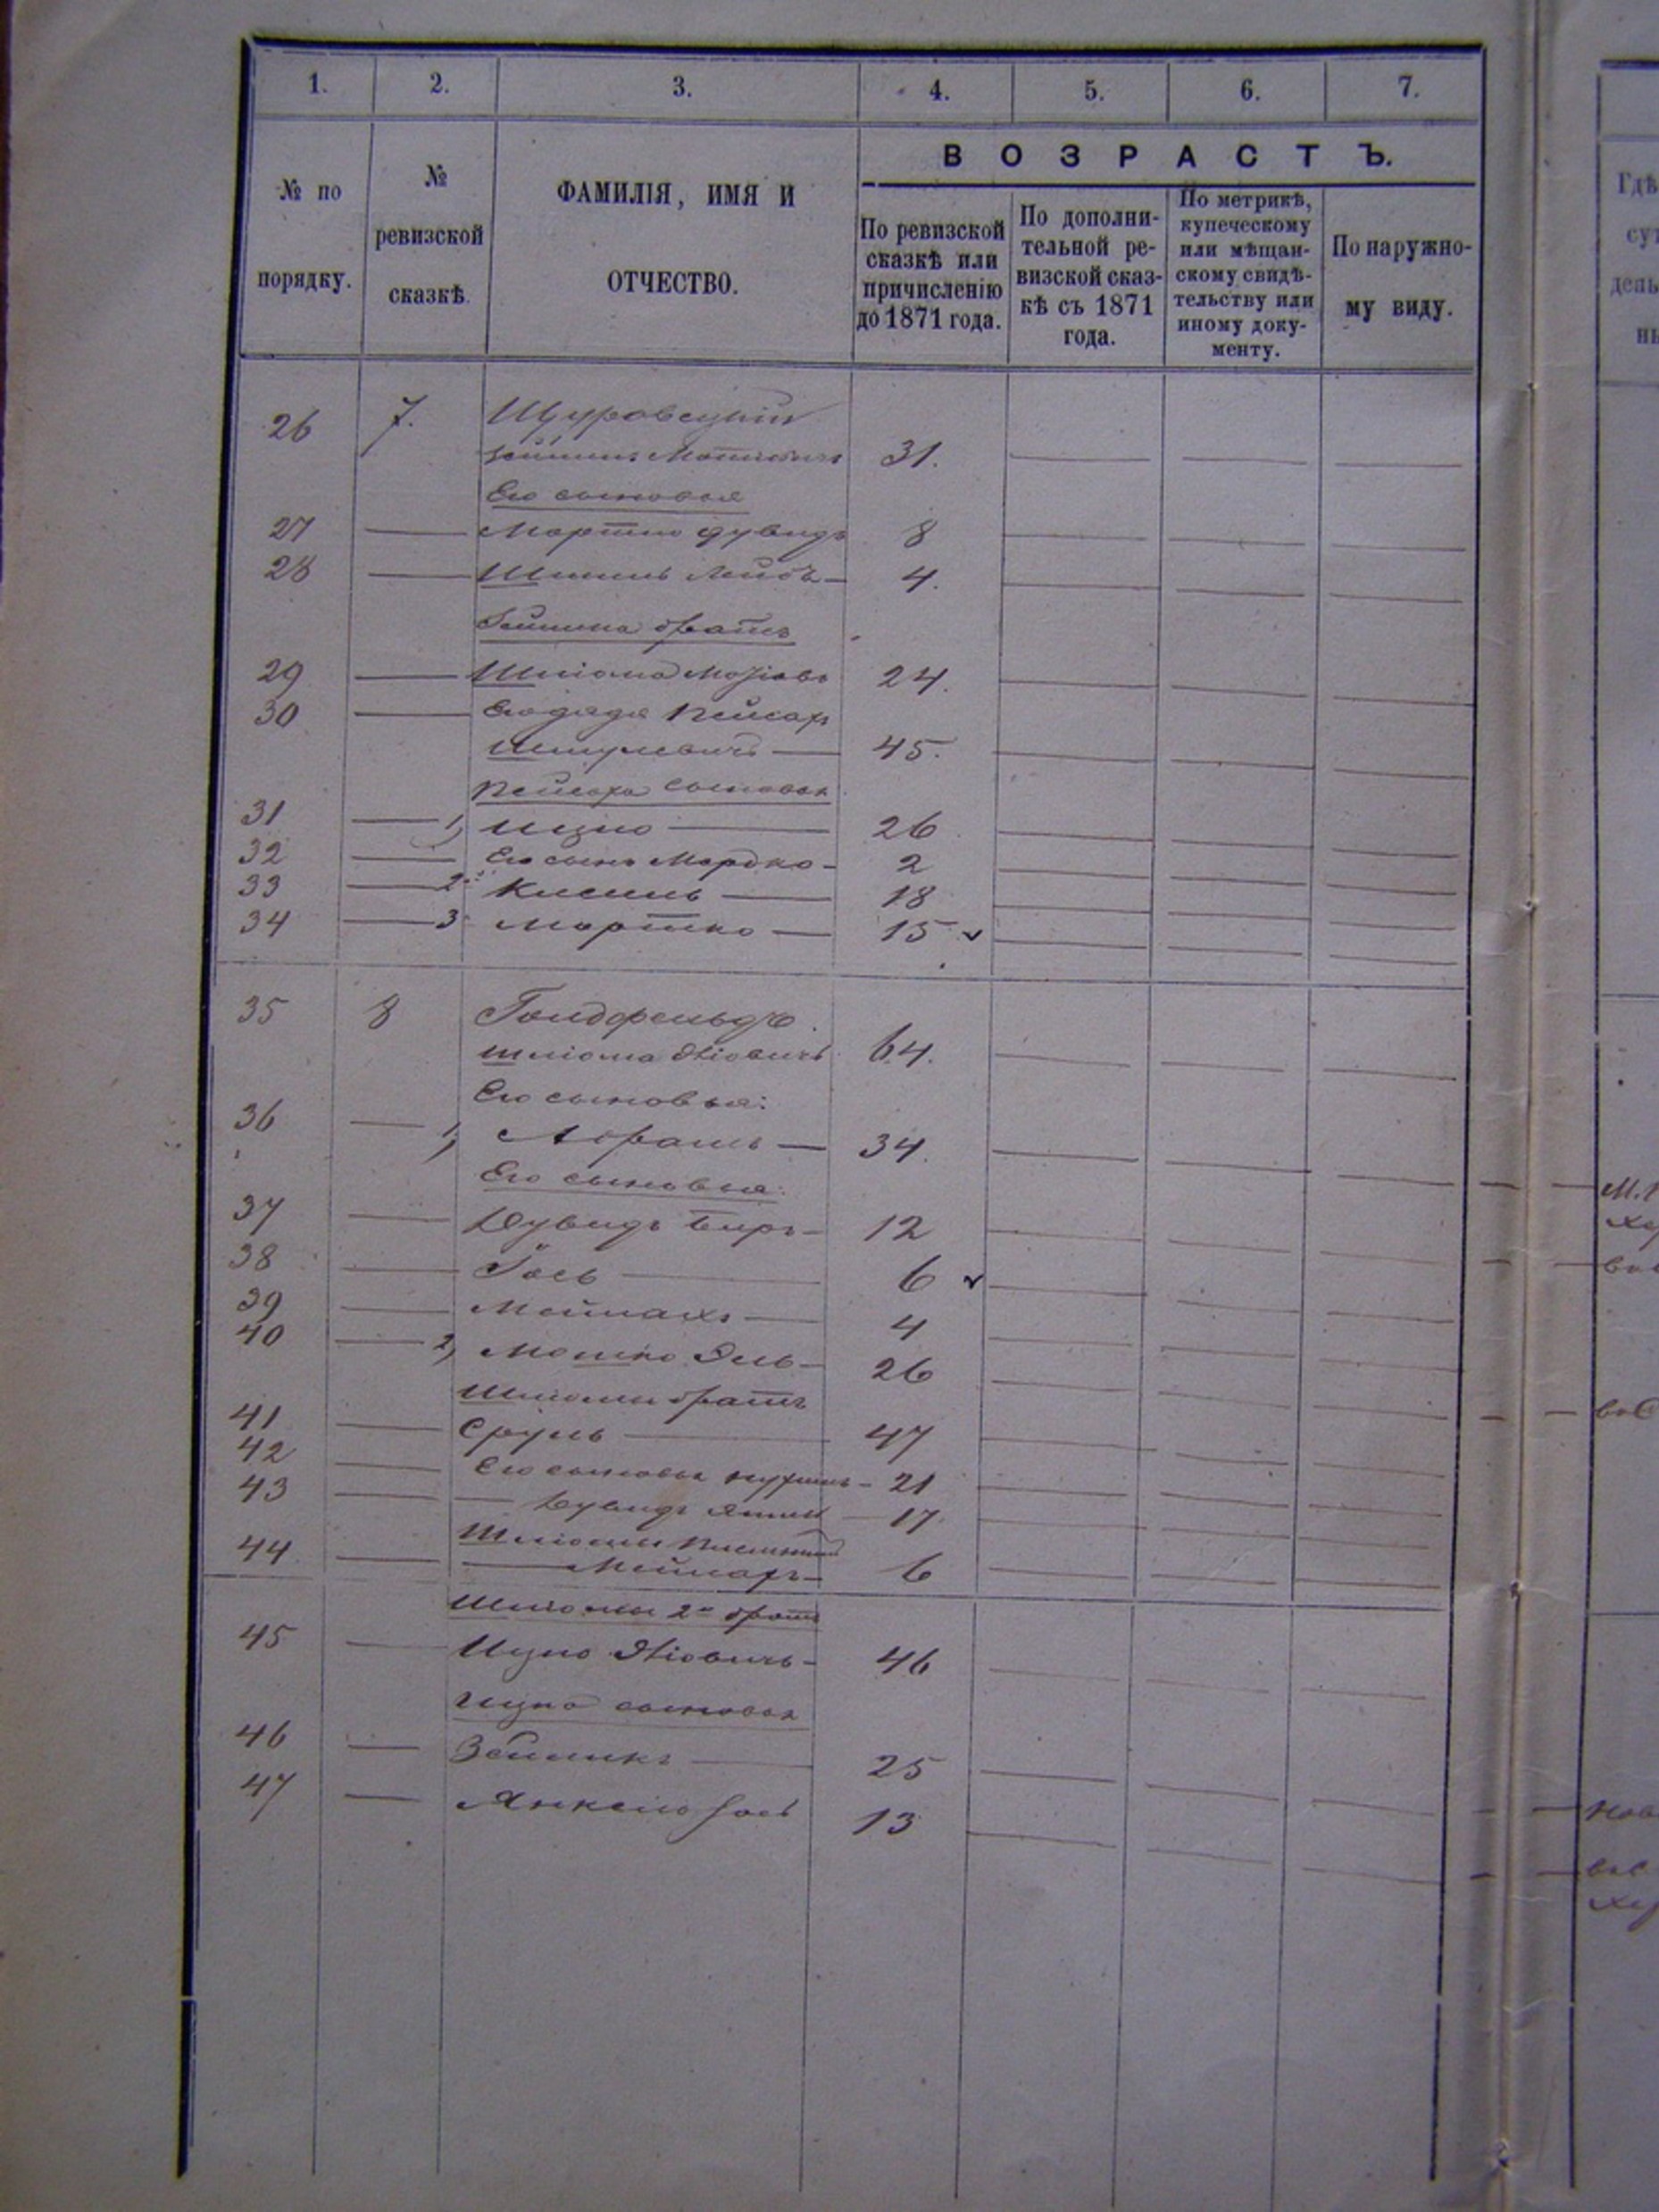 1. 2. 3. 4. 5. 6. 7.
№ по порядку.
№ ревизской сказкѣ.
ФАМИЛІЯ, ИМЯ И ОТЧЕСТВО.
ВОЗРАСТЪ.
По ревизской сказкѣ или причисленію до 1871 года.
По дополнительной ревизской сказкѣ съ 1871 года.
По метрикѣ, купеческому или мѣщанскому свидѣтельству или иному документу.
По наружному виду.
26 7. Щуровецкій
31.
Его сыновья
27 — Мортко Дувидъ 8
28 — Шмиль Лейбъ — 4.
братъ
29 — Шліома 24.
30 — Его дядя Пейсахъ
Шмулевичъ — 45.
Пейсаха сыновья
31 — 1, Ицко — 26
32 — Его сынъ Мордко — 2
33 — 2 Кисиль — 18
34 — 3 Мортко — 15
35 8 Голдфельдъ
Шліома 64.
Его сыновья:
36 — 1, Абрамъ — 34.
Его сыновья:
37 — Дувидъ Беръ — 12
38 — Гось — 6
39 — Мейлахъ — 4
40 — 2, Мошко Эль — 26
Шліомы братъ
41 — Сруль — 47
42 — Его сыновья — 21
43 — Дувидъ — 17
44 — Шліомы
— Мейлахъ — 6
Шліомы 2й братъ
45 — Ицко — 46
Ицка сыновья
46 — Зейликъ — 25
47 — Янкель 13